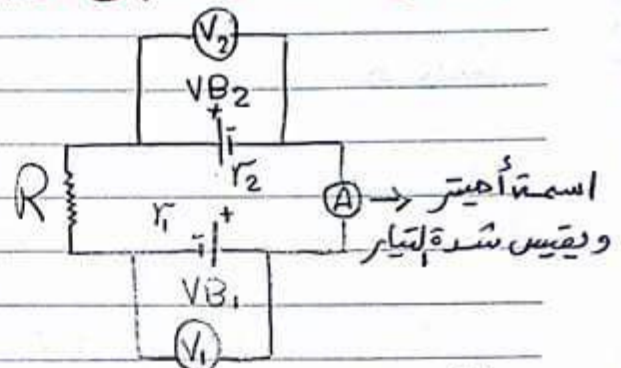 V₂
VB₂
+ -
r₂
R
A → اسمه أميتر
ويقيس شدة التيار
r₁ - +
VB₁
V₁